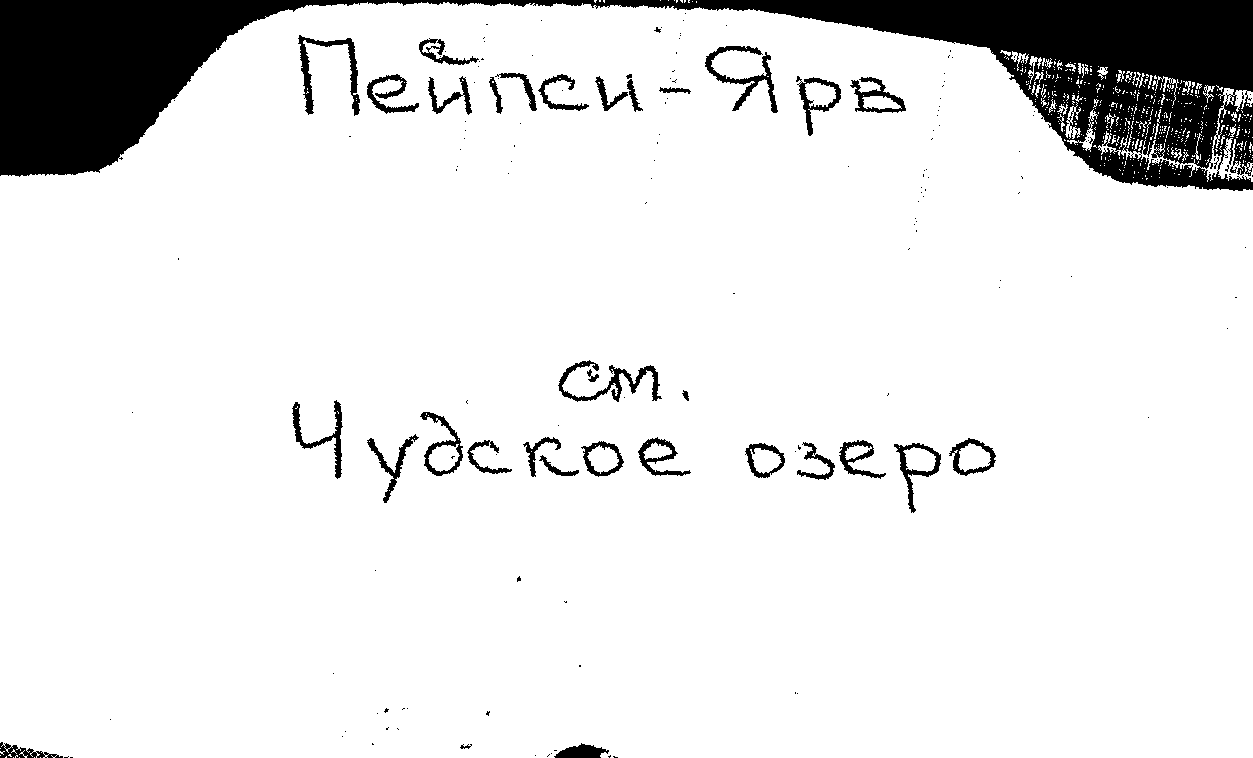 Пейпси-Ярв
ст.
Чудское озеро